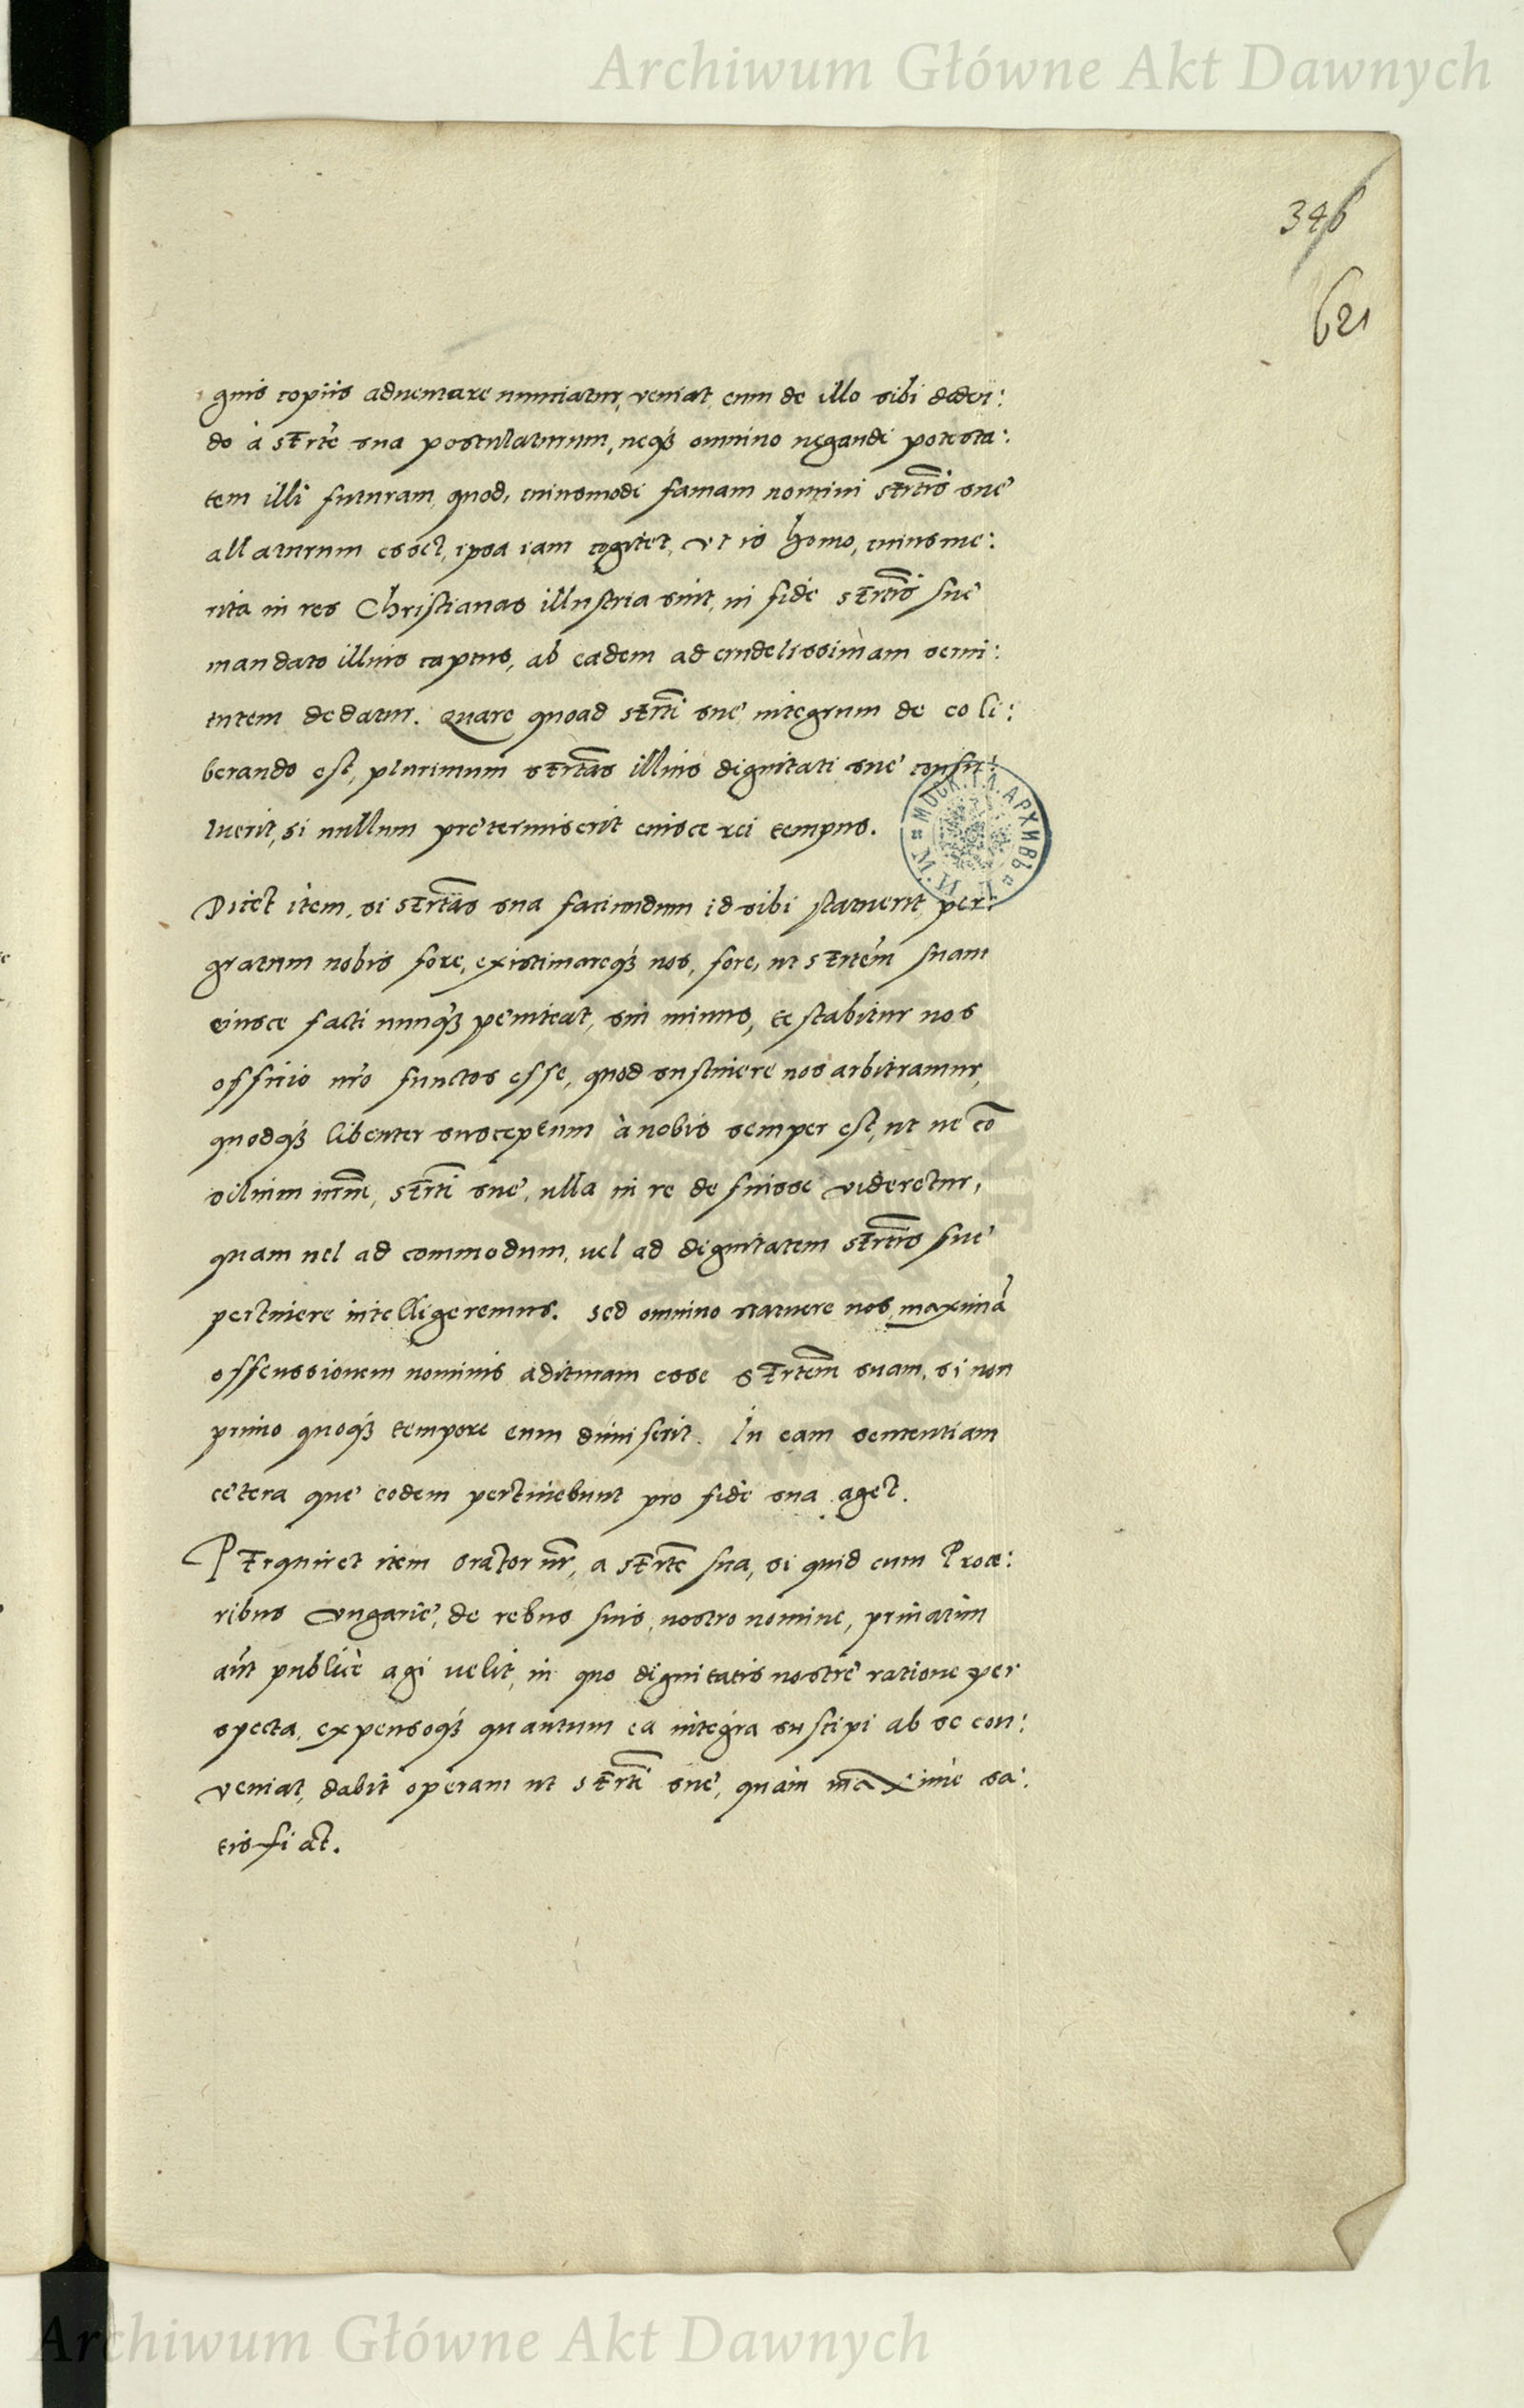 Archiwum Główne Akt Dawnych
346
621
gnis copiis aduentare nunciatur, veniat, eum de illo sibi deden:
do à sErtè sua postulaturum, neqȝ omnino negandi potesta:
tem illi futuram, quod, cuiusmodi famam nomini sErtis̃ sue
allaturum esset, ipsa iam cogitet, vt is homo, cuius me:
rita in res Christianas illustria sint, in fide sErtis̃ sue
mandato illius captus, ab eadem ad crudelissimam serui:
tutem dedatur. Quare quoad sErtĩ sue integrum de eo li:
berando est, plurimum sErtãs illius dignitati sue consu:
luerit, si nullum pretermiserit eiusce rei tempus.
МОСК. Г. А. АРХИВЪ
М. И. Д.
Dicet item, si sErtãs sua faciundum id sibi statuerit, per:
gratum nobis fore, existimareqȝ nos, fore, ut sErtem̃ suam
eiusce facti nunqȝ peniteat, sin minus, testabitur nos
officio nrõ functos esse, quod sustinere nos arbitramur,
quodqȝ libenter susceptum à nobis semper est, ut ne cõ
silium nrm̃, sErtĩ sue, ulla in re defuisse videretur,
quam uel ad commodum, uel ad dignitatem sErtis̃ sue
pertinere intelligeremus. Sed omnino statuere nos, maximã
offenssionem nominis adituram esse sErtem̃ suam, si non
primo quoqȝ tempore eum dimiserit. In eam sententiam
cetera que eodem pertinebunt pro fide sua aget.
PErquiret item orator nr̃, a sErtẽ sua, si quid cum Proce:
ribus Vngarie, de rebus suis, nostro nomine, priuatim
aut publicè agi uelit, in quo dignitatis nostre ratione per
specta, expensoqȝ quantum ea integra suscipi ab se con:
veniat, dabit operam ut sErtĩ sue, quàm maxime sa:
tisfiat.
Archiwum Główne Akt Dawnych